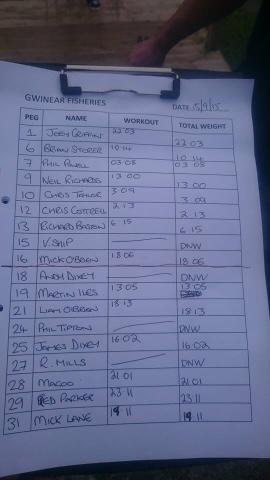 GWINEAR FISHERIES
DATE 15/9/15
PEG NAME WORKOUT TOTAL WEIGHT
1 JOEY GRIFFIN 22 03 22 03
6 BRIAN STORER 10 14 10 14
7 PHIL POWELL 03 05 03 05
9 NEIL RICHARDS 13 00 13 00
10 CHRIS TAYLOR 3 09 3 09
12 CHRIS COTTRELL 2 13 2 13
13 RICHARD BASTON 6 15 6 15
15 V.SHIP DNW
16 MICK O'BRIEN 18 06 18 06
18 ANDY DIXEY DNW
19 MARTIN ILES 13 05 13 05
21 LIAM O'BRIEN 18 13 18 13
24 PHIL TIPTON DNW
25 JAMES DIXEY 16 02 16 02
27 R. MILLS DNW
28 MAGOO 21 01 21 01
29 RED PARKER 23 11 23 11
31 MICK LANE 19 11 19 11